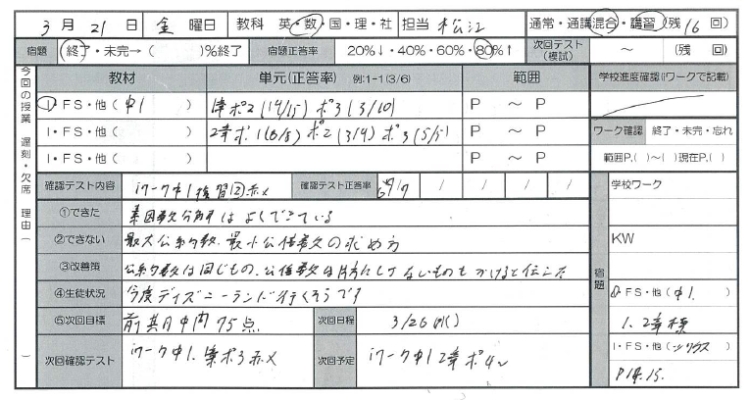 3月21日 金曜日 教科 英・数・国・理・社 担当 松江 通常・通講混合・講習(残16回)
宿題 終了・未完→( )%終了 宿題正答率 20%↓・40%・60%・80%↑ 次回テスト(模試) ~ (残 回)
今回の授業 遅刻・欠席 理由( )
教材 単元(正答率) 例:1-1(3/6) 範囲 学校進度確認(ワークで記載)
I・FS・他(中1 ) 1章ポ2(14/15) ポ3(3/10) P ~ P
I・FS・他( ) 2章ポ1(6/8) ポ2(3/4) ポ3(5/5) P ~ P ワーク確認 終了・未完・忘れ
I・FS・他( ) P ~ P 範囲P.( )~( )現在P.( )
確認テスト内容 iワーク中1復習②赤〆 確認テスト正答率 / / / /
宿題 学校ワーク
①できた 素因数分解はよくできている
②できない 最大公約数、最小公倍数の求め方
KW
③改善策 公約数は同じもの、公倍数は片方にしかないものもかけると伝えた
④生徒状況 今度ディズニーランド行くそうです
I・FS・他(中1. )
1.2章標
⑤次回目標 前期中間75点 次回日程 3/26(水)
I・FS・他(シリウス )
P14.15.
次回確認テスト iワーク中1.1章ポ3赤〆 次回予定 iワーク中1 2章ポ4~